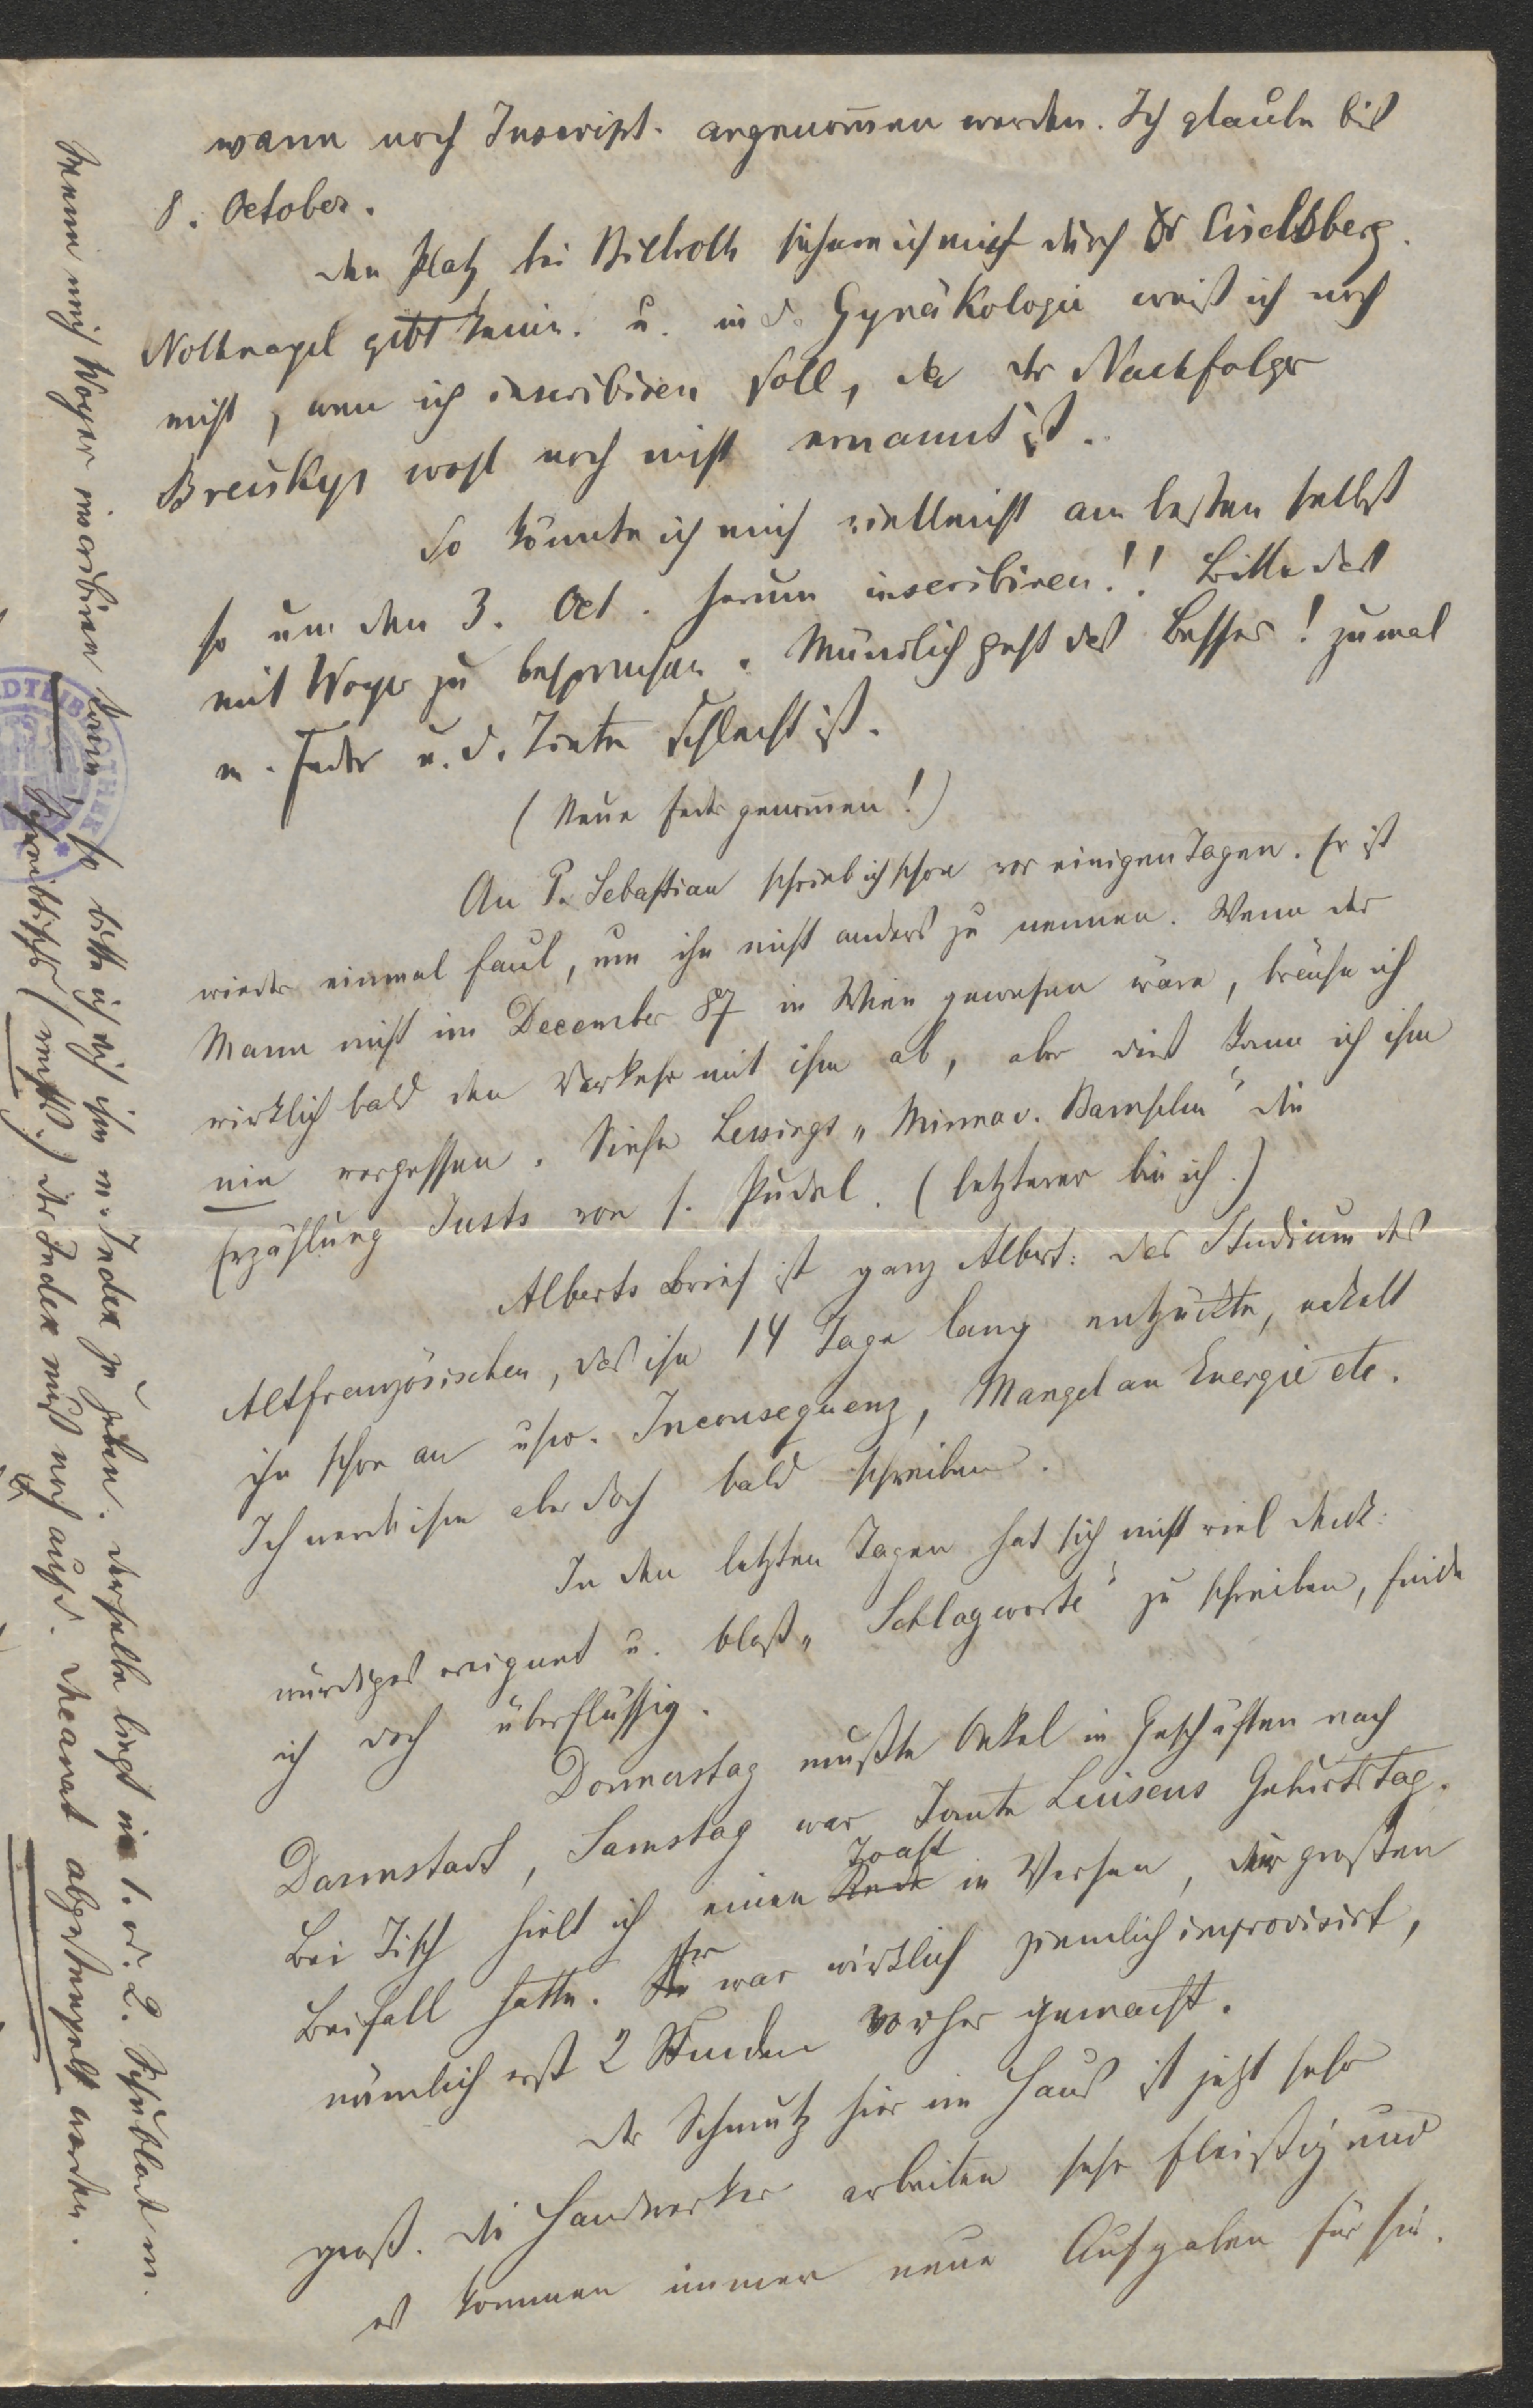 wann noch Inscript. angenom̄en werden. Ich glaube bis
8. October.
Den Platz bei Billroth sichere ich mich durch Dr Eiselsberg.
Nothnagel gibt keine. u. in d. Gynäkologie weiß ich noch
nicht, wen ich inscribiren soll, da der Nachfolger
Breiskys wohl noch nicht ernannt ist.
So könnte ich mich vielleicht am besten selbst
so um den 3. Oct. herum inscribiren!! Bitte das
mit Woyer zu besprechen. Mündlich geht das besser! zumal
m. Feder u. d. Tinte schlecht ist.
(Neue Feder genom̄en!)
An P. Sebastian schrieb ich schon vor einigen Tagen. Er ist
wieder einmal faul, um ihn nicht anders zu nennen. Wenn der
Mann nicht im December 87 in Wien gewesen wäre, bräche ich
wirklich bald den Verkehr mit ihm ab, aber dies kann ich ihm
nie vergessen. Siehe Lessings „Minna v. Barnhelm" die
Erzählung Justs von s. Pudel. (letzterer bin ich.)
Alberts Brief ist ganz Albert: das Studium des
Altfranzösischen, das ihn 14 Tage lang entzückte, eckelt
ihn schon an usw. Inconsequenz, Mangel an Energie etc.
Ich werde ihm aber doch bald schreiben.
In den letzten Tagen hat sich nicht viel denk:
würdiges ereignet u. bloß „Schlagworte" zu schreiben, finde
ich doch überflüssig.
Donnerstag mußte Onkel in Geschäften nach
Darmstadt, Samstag war Tante Luisens Geburtstag.
Bei Tisch hielt ich einen Rede Toast in Versen, der großen
Beifall hatte. Er war wirklich ziemlich improvisirt,
nämlich erst 2 Stunden vorher gemacht.
Der Schmutz hier im Haus ist jetzt sehr
groß. Die Handwerker arbeiten sehr fleißig und
es kommen immer neue Aufgaben für sie.
Wenn mich Woyer inscribiren kann, so bitte ich dich ihm m. Index zu geben. Derselbe liegt in 1. od. 2. Schublade m.
Schreibtisches (rechts.) Der Index muß noch auf d. Decanat abgestempelt werden.